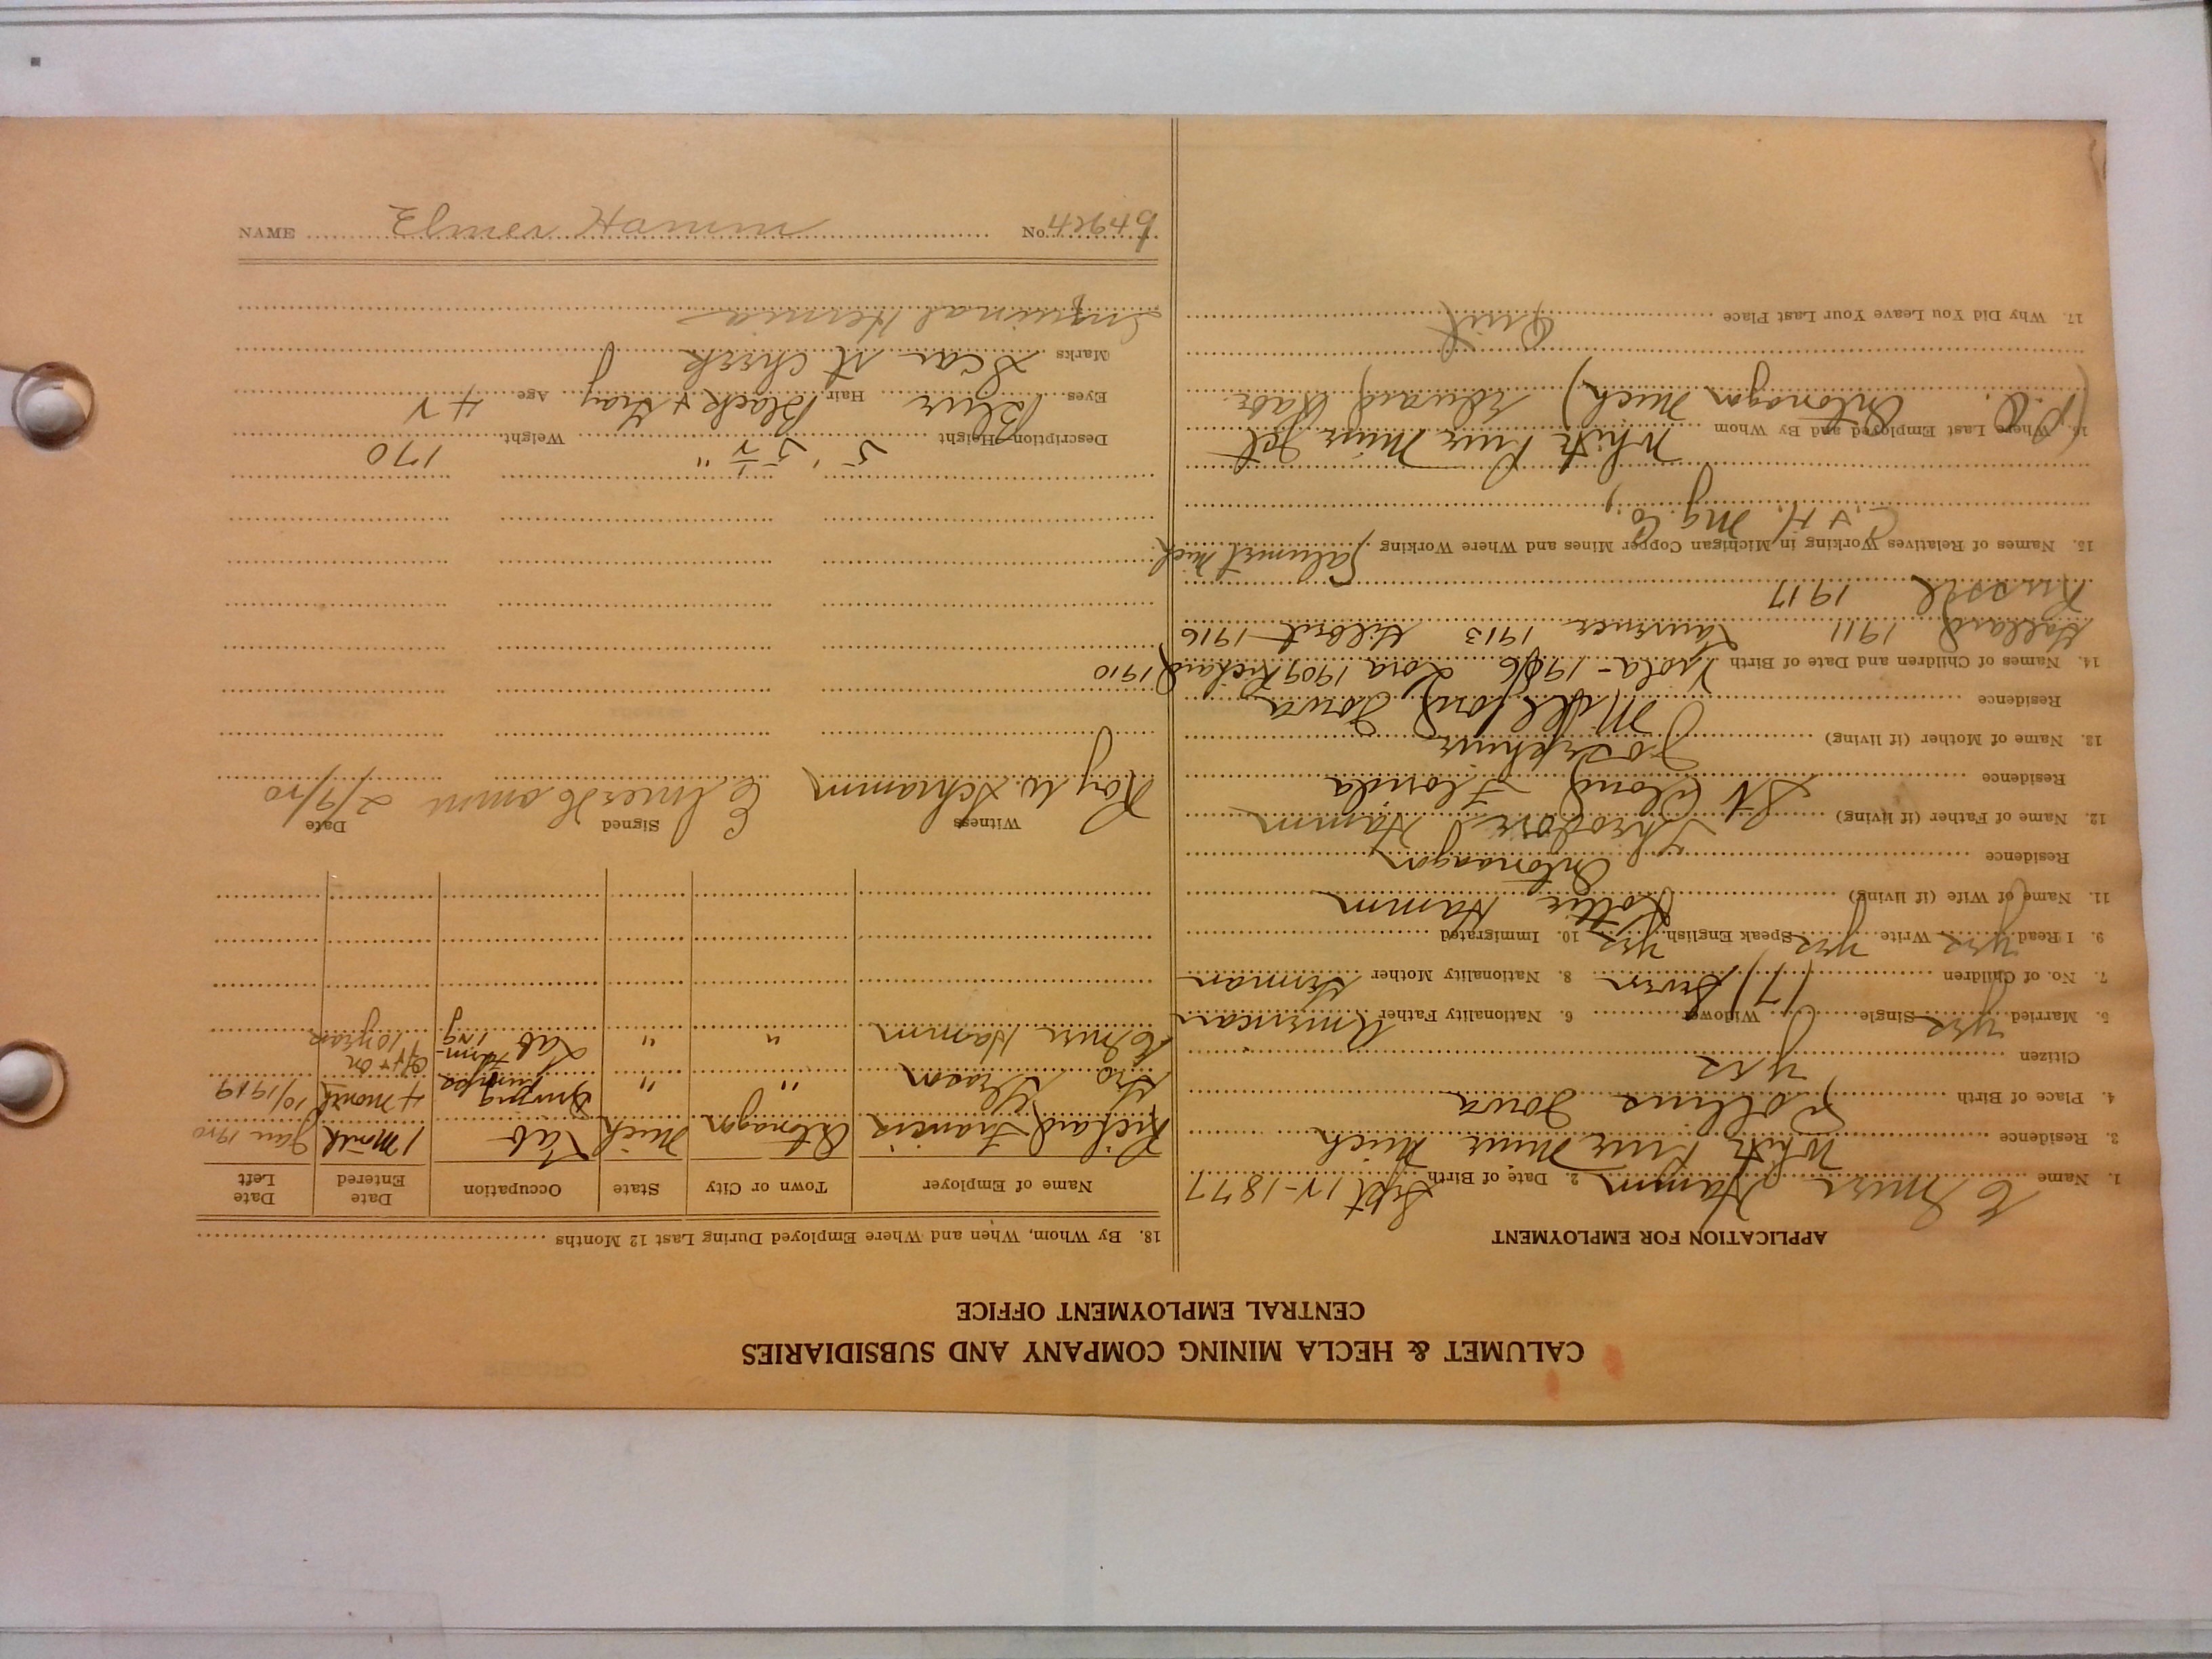 CALUMET & HECLA MINING COMPANY AND SUBSIDIARIES
CENTRAL EMPLOYMENT OFFICE
APPLICATION FOR EMPLOYMENT
1. Name Elmer Hamm 2. Date of Birth Sept 12-1877
3. Residence White Pine Mine Mich
4. Place of Birth Collins Iowa
Citizen yes
5. Married yes Single Widower 6. Nationality Father American
7. No. of Children (7) Seven 8. Nationality Mother German
9. I Read yes Write yes Speak English yes 10. Immigrated
11. Name of Wife (if living) Lottie Hamm
Residence Ontonagon
12. Name of Father (if living) Theodore Hamm
Residence St Cloud Florida
13. Name of Mother (if living) Josephine
Residence Millford Iowa
14. Names of Children and Date of Birth 1906 Zora 1909 Richard 1910
Hallard 1911 Lawrence 1913 Gilbert 1916
Russel 1917
15. Names of Relatives Working in Michigan Copper Mines and Where Working Calumet Mich
C. & H. Mg. Co,
16. Where Last Employed and By Whom White Pine Mine Ext
(P.O. Ontonagon Mich) Edward
17. Why Did You Leave Your Last Place Quit
18. By Whom, When and Where Employed During Last 12 Months
Name of Employer Town or City State Occupation Date Entered Date Left
Richard Francis Ontonagon Mich Lab 1 Month Jan 1920
Geo " " Driving 4 month 10/1919
Elmer Hamm " " Lab Farm-ing off & on 10 years
Witness Signed Date
Roy W. Schramm Elmer Hamm 2/9/20
Description—Height 5' 5 1/2" Weight 170
Eyes Blue Hair Black & Gray Age 42
Marks Scar rt cheek
Inguinal Hernia
NAME Elmer Hamm No. 42949